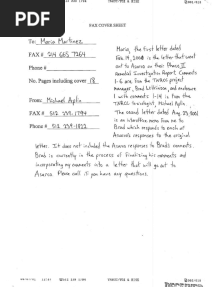 PDF
FAX COVER SHEET
To: Marco Martinez
FAX # 214 665 7264
Phone #
No. Pages including cover 18
From: Michael Aplin
FAX # 512 239-1794
Phone # 512 239-1822
Marco, the first letter dated
Feb 14, 2008 is the letter that went
out to Asarco on their Phase I
Remedial Investigation Report. Comments
1-6 are from the TARCO project
manager, Brad Wilkinson, and enclosure
1 with comments 1-14 is from the
TARCO toxicologist, Michael Aplin.
The second letter dated Aug 29, 2008
is an interoffice memo from me to
Brad which responds to each of
Asarco's responses to the original
letter. It does not included the Asarco responses to Brad's comments.
Brad is currently in the process of finalizing his comments and
incorporating my comments into a letter that will go out to
Asarco. Please call if you have any questions.